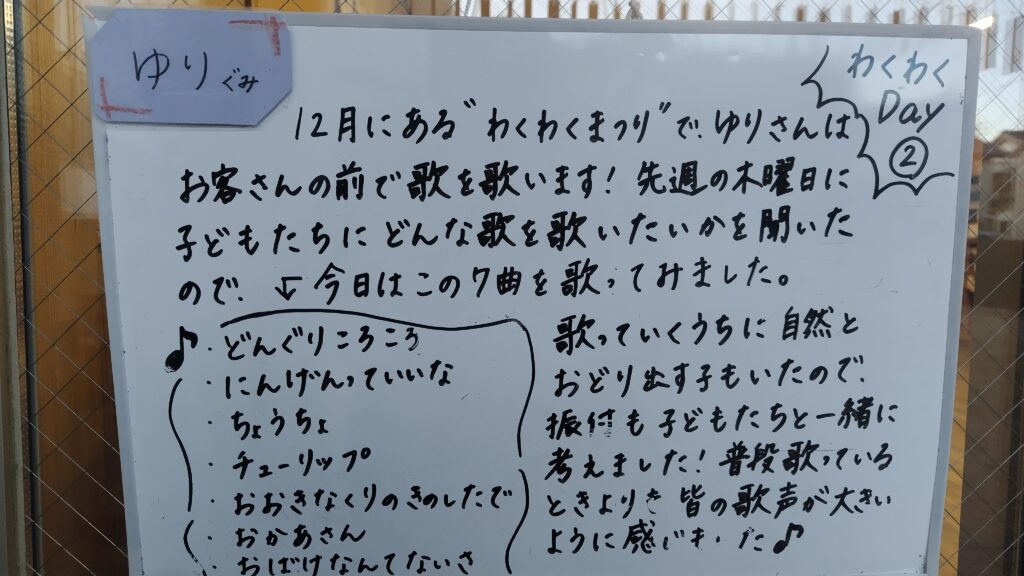 ゆりぐみ
わくわく
Day
②
12月にある"わくわくまつり"で、ゆりさんは
お客さんの前で歌を歌います！先週の木曜日に
子どもたちにどんな歌を歌いたいかを聞いた
ので、↙今日はこの7曲を歌ってみました。
♪・どんぐりころころ
・にんげんっていいな
・ちょうちょ
・チューリップ
・おおきなくりのきのしたで
・おかあさん
・おばけなんてないさ
歌っていくうちに自然と
おどり出す子もいたので、
振付も子どもたちと一緒に
考えました！普段歌っている
ときより 皆の歌声が大きい
ように感じ た♪